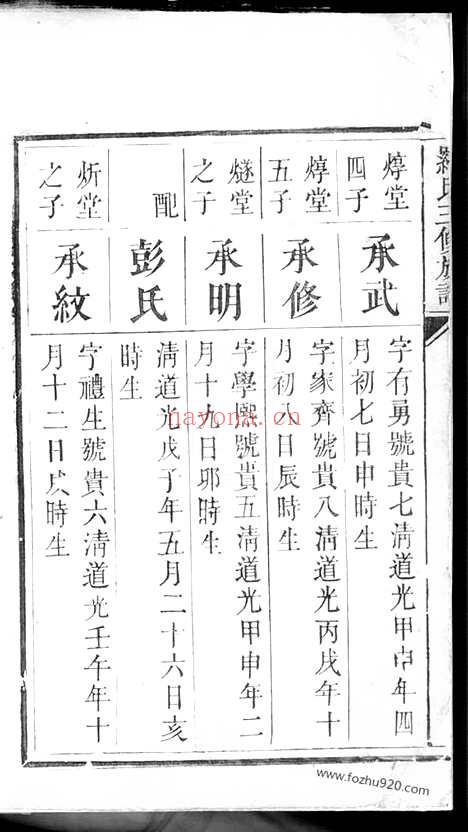 羅氏三修族譜
焞堂
四子
承武
字有勇號貴七清道光甲申年四
月初七日申時生
焞堂
五子
承修
字家齊號貴八清道光丙戌年十
月初八日辰時生
燧堂
之子
承明
字學熙號貴五清道光甲申年二
月十九日卯時生
配
彭氏
清道光戊子年五月二十六日亥
時生
炘堂
之子
承紋
字禮生號貴六清道光壬午年十
月十二日戌時生
nayona.cn
www.fozhu920.com